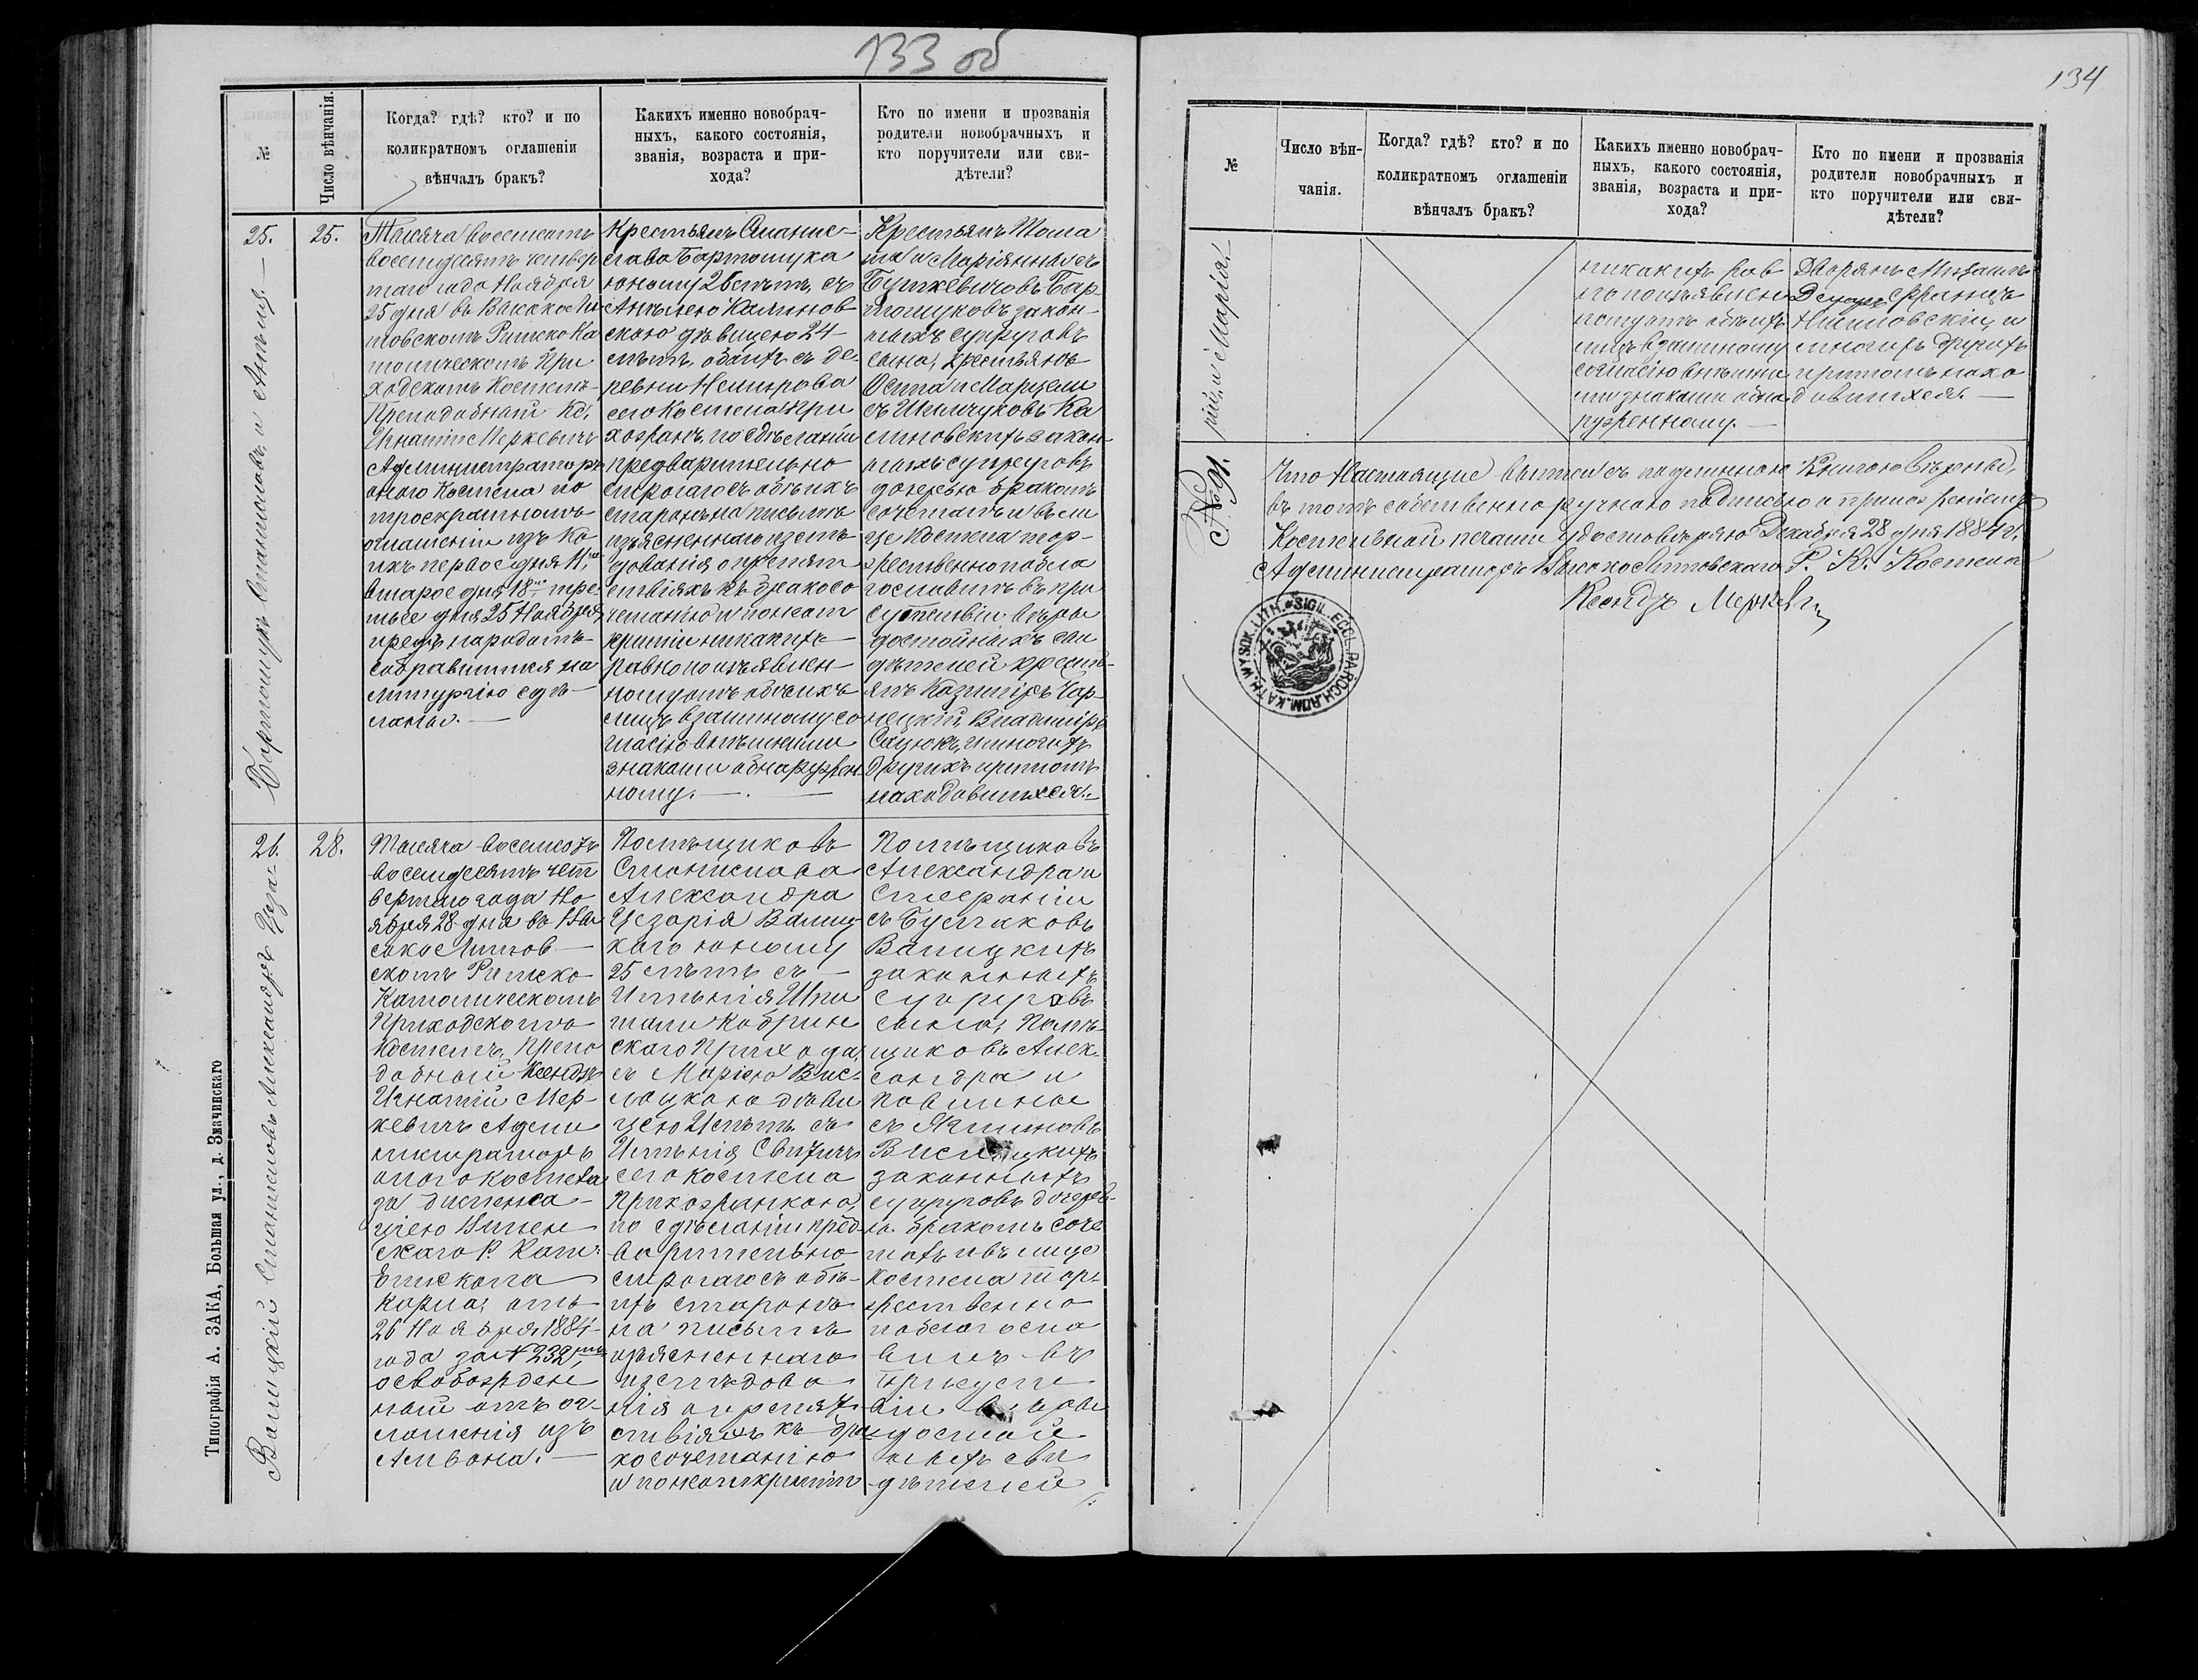 133 об
№
Число вѣнчанія.
Когда? гдѣ? кто? и по
коликратномъ оглашеніи
вѣнчалъ бракъ?
Какихъ именно новобрач-
ныхъ, какого состоянія,
званія, возраста и при-
хода?
Кто по имени и прозванія
родители новобрачныхъ и
кто поручители или сви-
дѣтели?
25.
Бартошукъ Станиславъ, и Анѣля.
25.
Тысяча восемсотъ
восемдесятъ четвер
таго года Ноября
25 дня въ Високо Ли
товскомъ Римско Ка
толическомъ При
ходскомъ Костелѣ
Преподобный Кс.
Игнатій Меркевичъ
Администраторъ
оного Костела по
троекратномъ
оглашеніи изъ ко
ихъ первое дня 11,
второе дня 18, тре
тье дня 25 Ноября
предъ народомъ
собравшимся на
литургію сдѣ
ланы.
Крестьянъ Станис-
лава Бартошука
юношу 26 лѣтъ, съ
Анѣлею Калинов
скою дѣвицею 24
лѣтъ, обоихъ съ де-
ревни Немирова
сего Костела при
хожанъ, по сдѣланіи
предварительно
строгаго съ обѣихъ
сторонъ на письмѣ
изъясненнаго изслѣ
дованія о препят
ствіяхъ къ бракосо
четанію и по неот
крытіи никакихъ
равно по изъявлен
ному отъ обоихъ
лицъ взаимному со
гласію внѣшними
знаками обнаружен
ному.
Крестьянъ Тома
ша и Маріянны съ
Буткевичовъ Бар-
тошуковъ закон-
ныхъ супруговъ
сына, крестьянъ
Осипа и Марцели
съ Шимчуковъ Ка
линовскихъ закон-
ныхъ супруговъ
дочерью бракомъ
сочеталъ и въ ли
це Костела тор-
жественно побла
гословилъ въ при
сутствіи вѣры
достойныхъ сви
дѣтелей крестъ-
янъ Казиміръ Чар-
нецкій, Владиміръ
Сацюкъ, и многихъ
другихъ притомъ
находившихся.
26.
Валицкій Станиславъ Александръ Цеза-
28.
Тысяча восемсотъ
восемдесятъ чет
вертаго года Но
ября 28 дня въ Ви
соко Литов
скомъ Римско
Католическомъ
Приходскомъ
Костелѣ, Препо
добный Ксендзъ
Игнатій Мер-
кевичъ Адми
нистраторъ
оного Костела
за диспенса-
цією Вилен
скаго Р. Кат.
Епископа
отъ
26 Ноября 1884
года за № 232
освобожден
ный отъ ог-
лашенія изъ
Амвона.
Помѣщиковъ
Станислава
Александра
Цезарія Валиц
каго юношу
25 лѣтъ съ
Имѣнія Шпи
тали Кобрин
скаго Прихода,
съ Марією Вис-
лоцкою дѣви
цею лѣтъ съ
Имѣнія Свитичъ
сего Костела
Прихожанкою,
по сдѣланіи пред-
варительно
строгаго съ обѣ-
ихъ сторонъ
на письмѣ
изъясненнаго
изслѣдова
нія о препят-
ствіяхъ къ бра
косочетанію
и по неоткрытіи
Помѣщиковъ
Александра и
Стефаніи
съ Булгаковъ
Валицкихъ
законныхъ
супруговъ
сына, Помѣ-
щиковъ Алек-
сандра и
Павлины
съ
законныхъ
супруговъ дочерь-
ю бракомъ соче
талъ и въ лице
Костела тор-
жественно
поблагосло
вилъ въ
присутст
віи вѣры
достой
ныхъ сви
дѣтелей
Типографія А. ЗАКА, Большая ул., д. Значинскаго
134
№
Число вѣн-
чанія.
Когда? гдѣ? кто? и по
коликратномъ оглашеніи
вѣнчалъ бракъ?
Какихъ именно новобрач-
ныхъ, какого состоянія,
званія, возраста и при-
хода?
Кто по имени и прозванія
родители новобрачныхъ и
кто поручители или сви-
дѣтели?
рій, и Марія.
никакихъ рав
но по изъявлен
ному отъ обѣихъ
лицъ взаимному
согласію внѣшни
ми знаками обна
руженному.
Дворянъ Михаилъ
Францъ
и
многихъ другихъ
притомъ нахо
дившихся.
№ 91.
Что настоящие выписи съ подлинною Книгою вѣрны,
въ томъ собственноручною подписью и приложеніемъ
Костельной печати удостовѣряю Декабря 28 дня 1884 г.
Администраторъ Высоко Литовскаго Р. К. Костела
Ксендзъ Меркевичъ
SIGIL. ECCL. PAROCH. ROM. KATH. WYSOK. LITH.